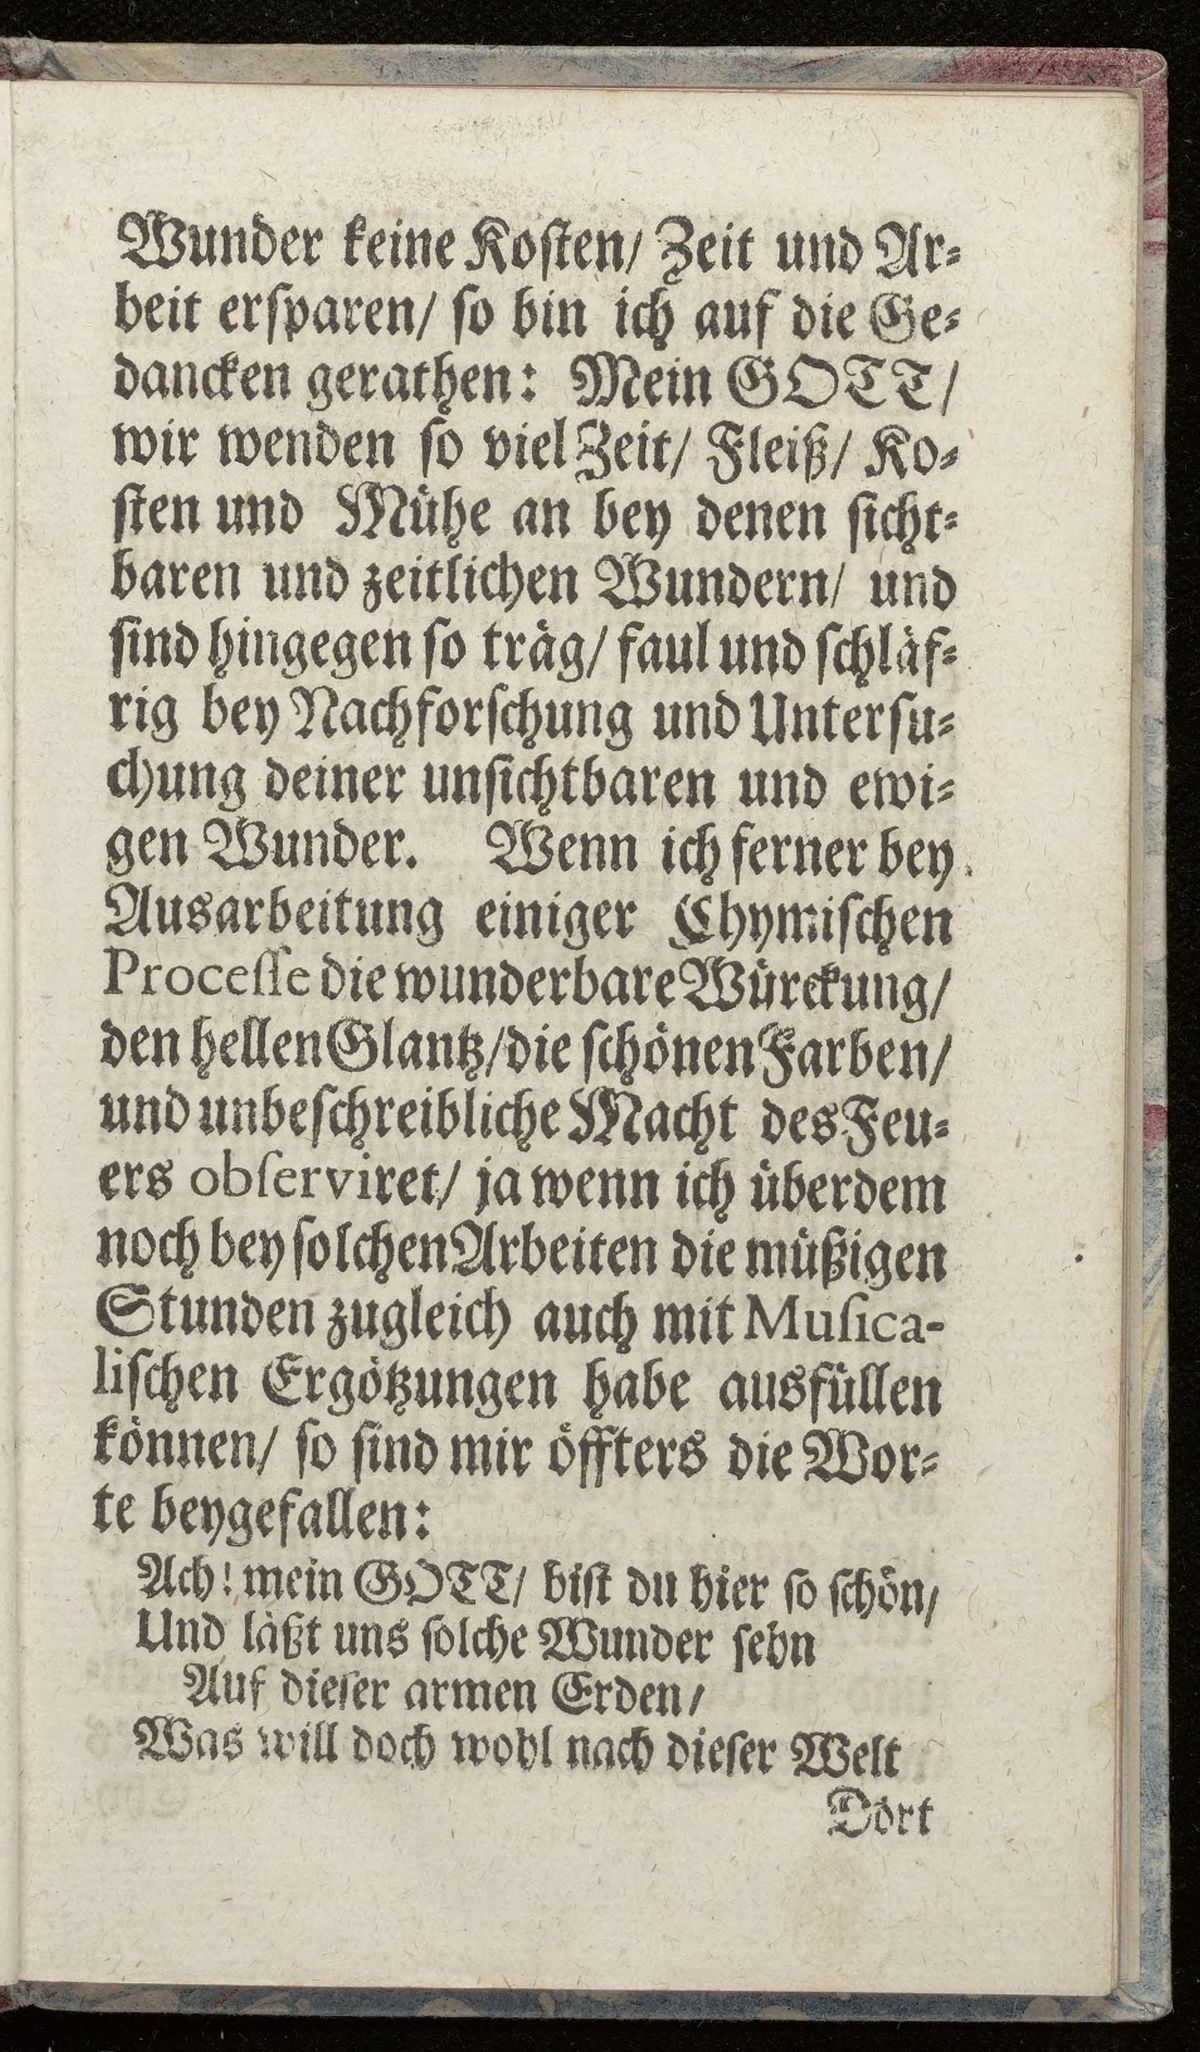 Wunder keine Koſten/ Zeit und Ar⸗
beit erſparen/ ſo bin ich auf die Ge⸗
dancken gerathen: Mein GOTT/
wir wenden ſo viel Zeit/ Fleiß/ Ko⸗
ſten und Mühe an bey denen ſicht⸗
baren und zeitlichen Wundern/ und
ſind hingegen ſo träg/ faul und ſchläf⸗
rig bey Nachforſchung und Unterſu⸗
chung deiner unſichtbaren und ewi⸗
gen Wunder. Wenn ich ferner bey
Ausarbeitung einiger Chymiſchen
Proceſſe die wunderbare Würckung/
den hellen Glantz/ die ſchönen Farben/
und unbeſchreibliche Macht des Feu⸗
ers obſerviret/ ja wenn ich überdem
noch bey ſolchen Arbeiten die müßigen
Stunden zugleich auch mit Muſica-
liſchen Ergötzungen habe ausfüllen
können/ ſo ſind mir öffters die Wor⸗
te beygefallen:
Ach! mein GOTT/ biſt du hier ſo ſchön/
Und läßt uns ſolche Wunder ſehn
Auf dieſer armen Erden/
Was will doch wohl nach dieſer Welt
Dort